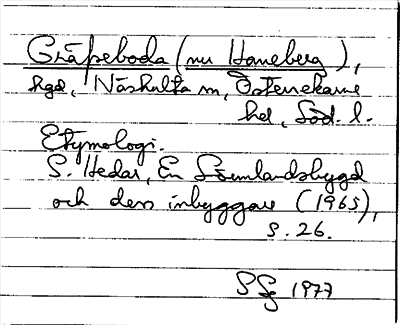 Gräpseboda (nu Haneberg),
hgd, Näshulta sn, Österrekarne
hd, Söd. l.
Etymologi.
S. Hedar, En Sörmlandsbygd
och dess inbyggare (1965),
s. 26.
SSg 1977